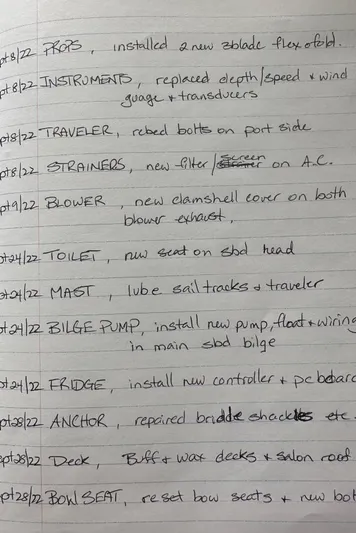 pt8/22 PROPS, installed 2 new 3blade flexofold.
pt8/22 INSTRUMENTS, replaced depth/speed & wind
guage & transducers
pt8/22 TRAVELER, rebed bolts on port side
pt8/22 STRAINERS, new filter/screen on A.C.
pt9/22 BLOWER, new clamshell cover on both
blower exhaust.
pt24/22 TOILET, new seat on sbd head
pt24/22 MAST, lube sail tracks & traveler
pt24/22 BILGE PUMP, install new pump, float & wiring
in main sbd bilge
pt24/22 FRIDGE, install new controller & pc board
pt28/22 ANCHOR, repaired bridle shackles etc.
pt28/22 Deck, Buff & wax decks & salon roof
pt28/22 BOW SEAT, reset bow seats & new bol